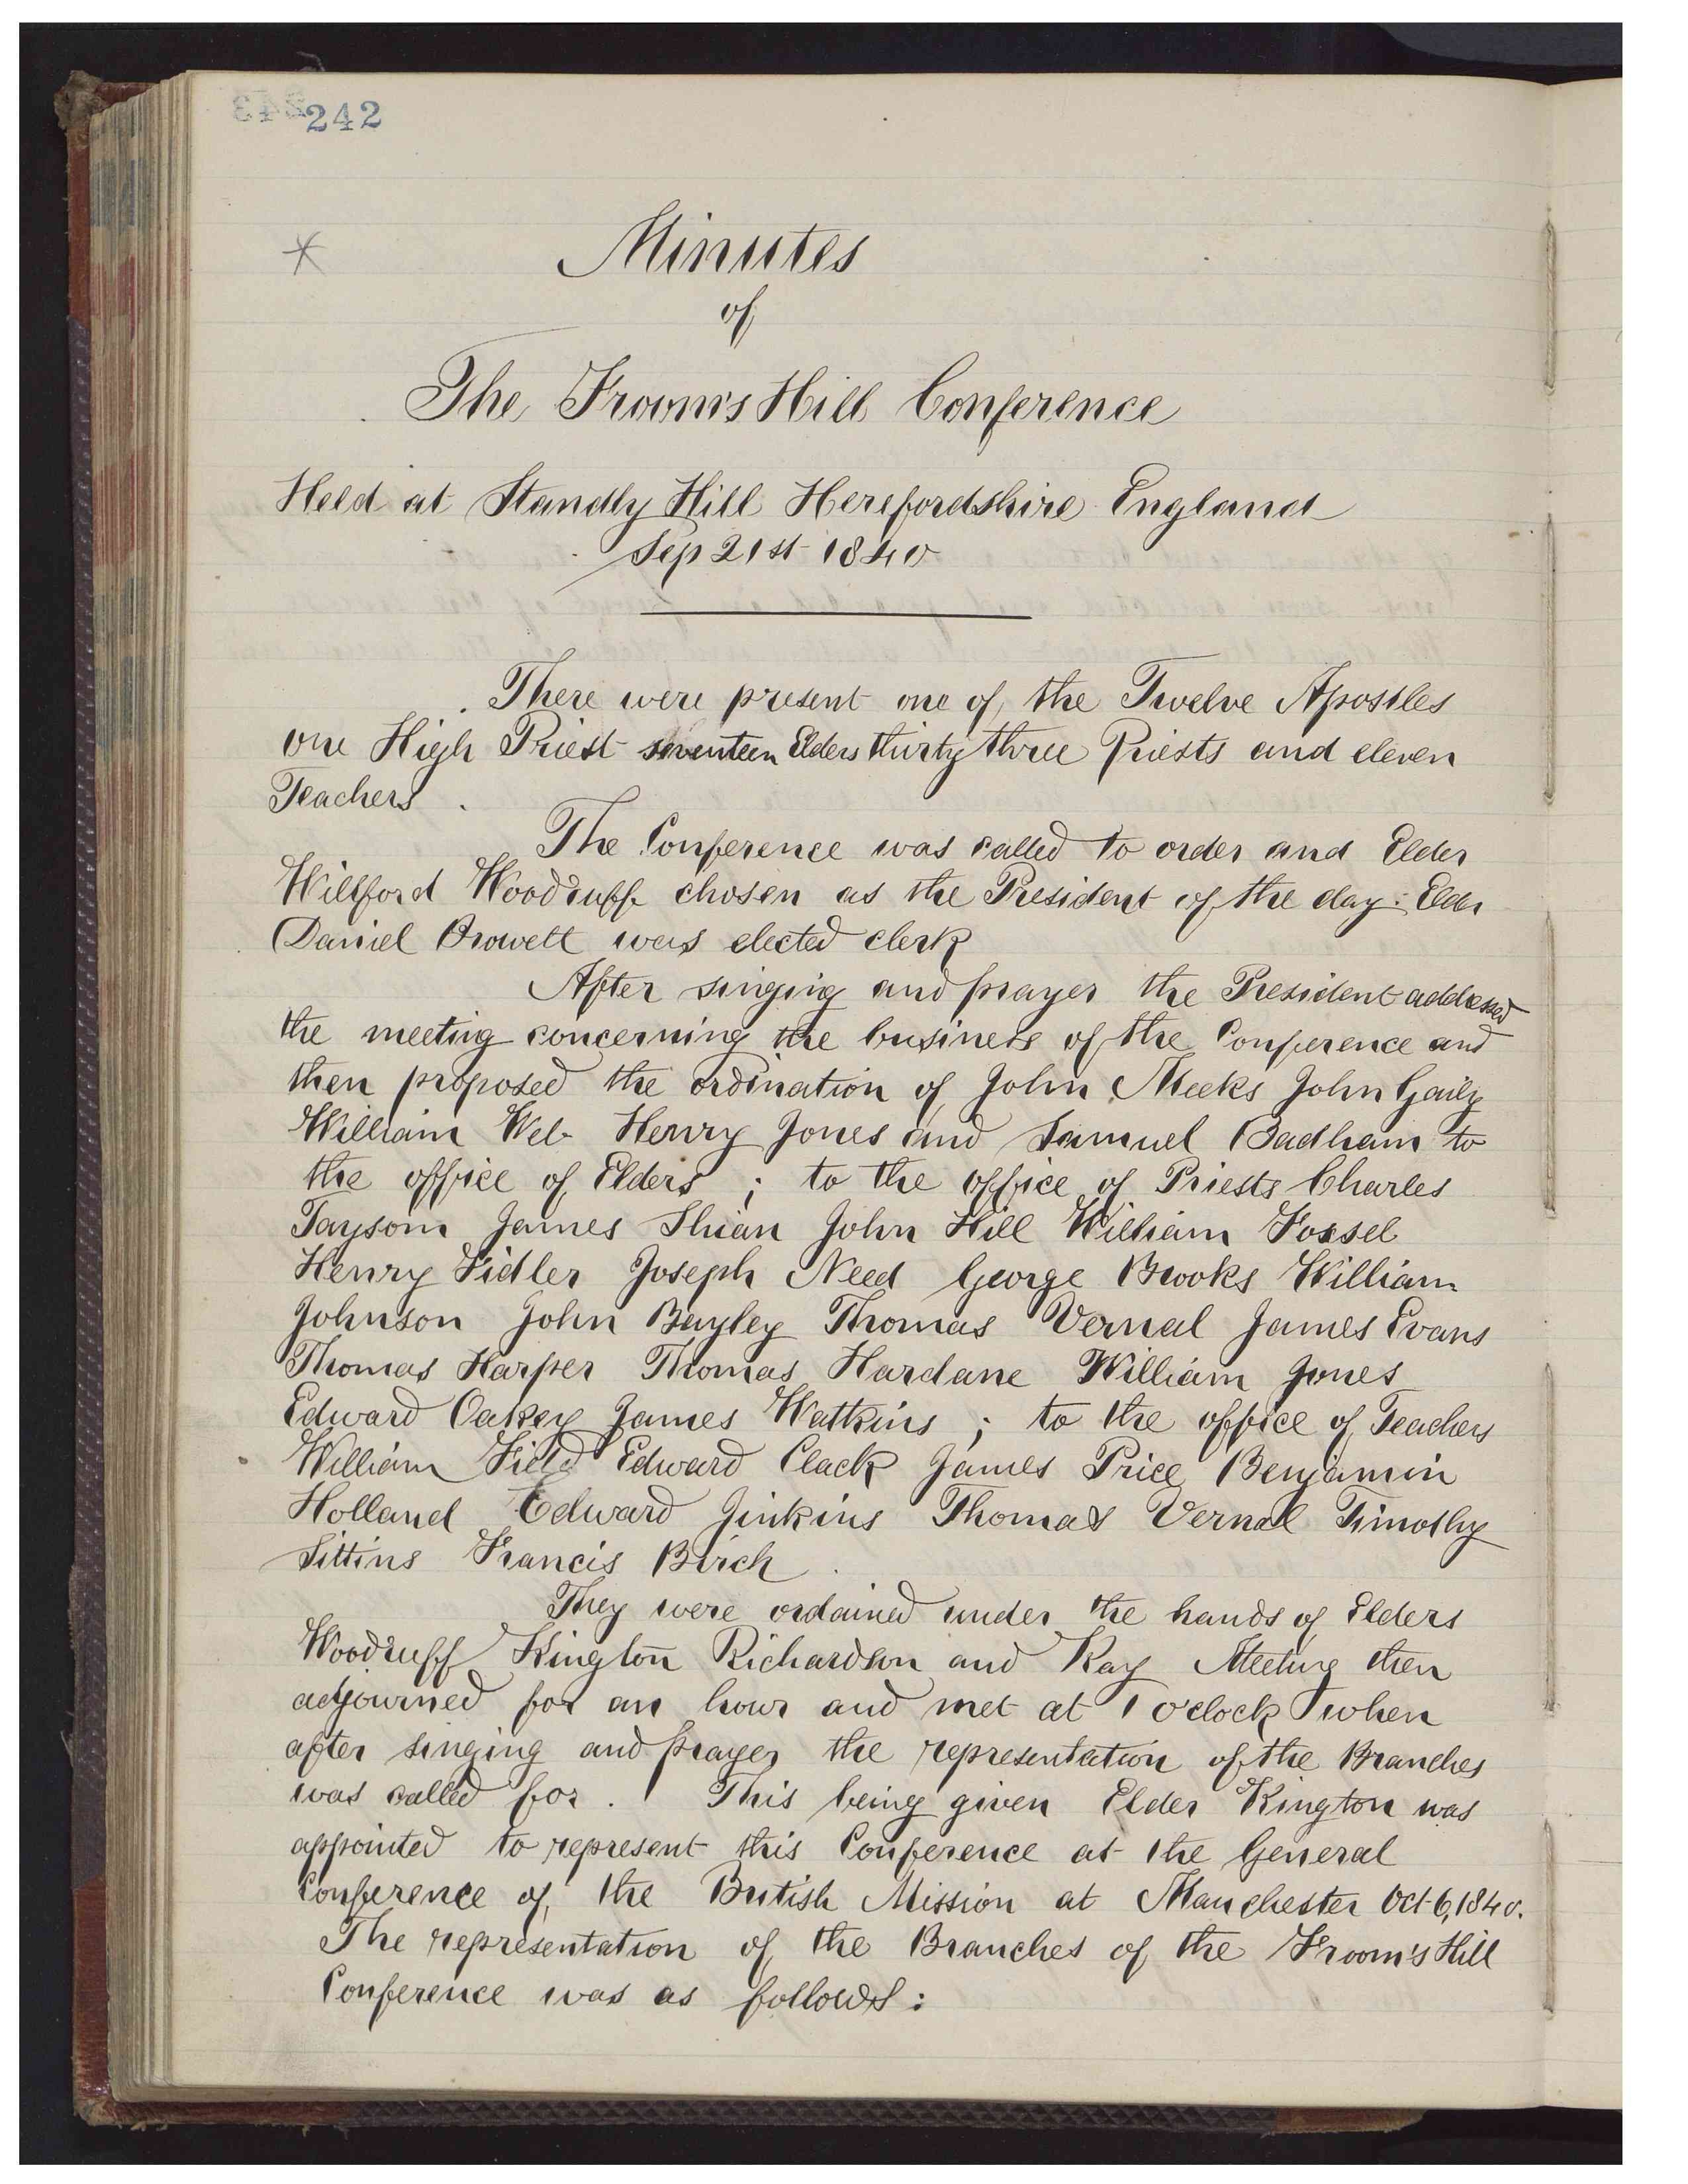 242
Minutes
of
The Froom's Hill Conference
Held at Standly Hill Herefordshire England
Sep 21st 1840
There were present one of the Twelve Apostles
one High Priest seventeen Elders thirty three Priests and eleven
Teachers.
The Conference was called to order and Elder
Willford Woodruff chosen as the President of the day: Elder
Daniel Browett was elected clerk
After singing and prayer the President addressed
the meeting concerning the business of the Conference and
then proposed the ordination of John Meeks John Gaily
William Web Henry Jones and Samuel Badham to
the office of Elders ; to the office of Priests Charles
Taysom James Shian John Hill William Fossel
Henry Fidler Joseph Need George Brooks William
Johnson John Bayley Thomas Vernal James Evans
Thomas Harper Thomas Hardane William Jones
Edward Oakey James Watkins ; to the office of Teachers
William Field Edward Clack James Price Benjamin
Holland Edward Jinkins Thomas Vernal Timothy
Sittins Francis Birch.
They were ordained under the hands of Elders
Woodruff Kington Richardson and Kay Meeting then
adjourned for an hour and met at 1 o'clock when
after singing and prayer the representation of the Branches
was called for. This being given Elder Kington was
appointed to represent this Conference at the General
Conference of the British Mission at Manchester Oct 6, 1840.
The representation of the Branches of the Froom's Hill
Conference was as follows: